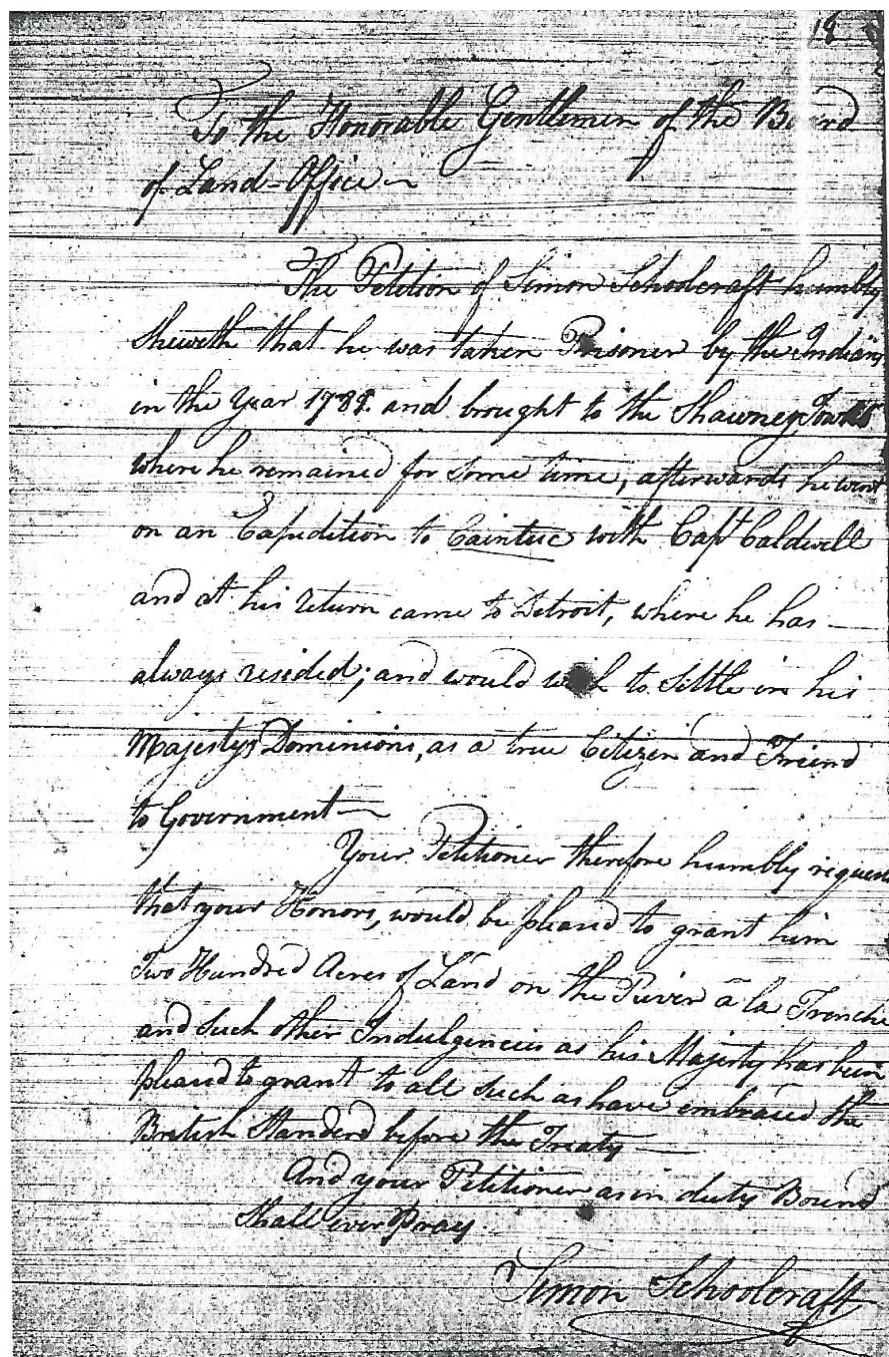 18
To the Honorable Gentlemen of the Board
of Land-Office
The Petition of Simon Schoolcraft humbly
sheweth that he was taken Prisoner by the Indians
in the Year and brought to the Shawney Towns
where he remained for some time, afterwards he went
on an Expedition to Caintuc with Capt Caldwell
and at his return came to Detroit, where he has
always resided; and would wish to settle in his
Majestys Dominions, as a true Citizen and Friend
to Government
Your Petitioner therefore humbly requests
that your Honors, would be pleased to grant him
Two Hundred Acres of Land on the River a la Trenche
and such other Indulgencies as his Majesty has been
pleased to grant to all such as have embraced the
British Standerd before the Treaty
And your Petitioner as in duty Bound
shall ever Pray
Simon Schoolcraft